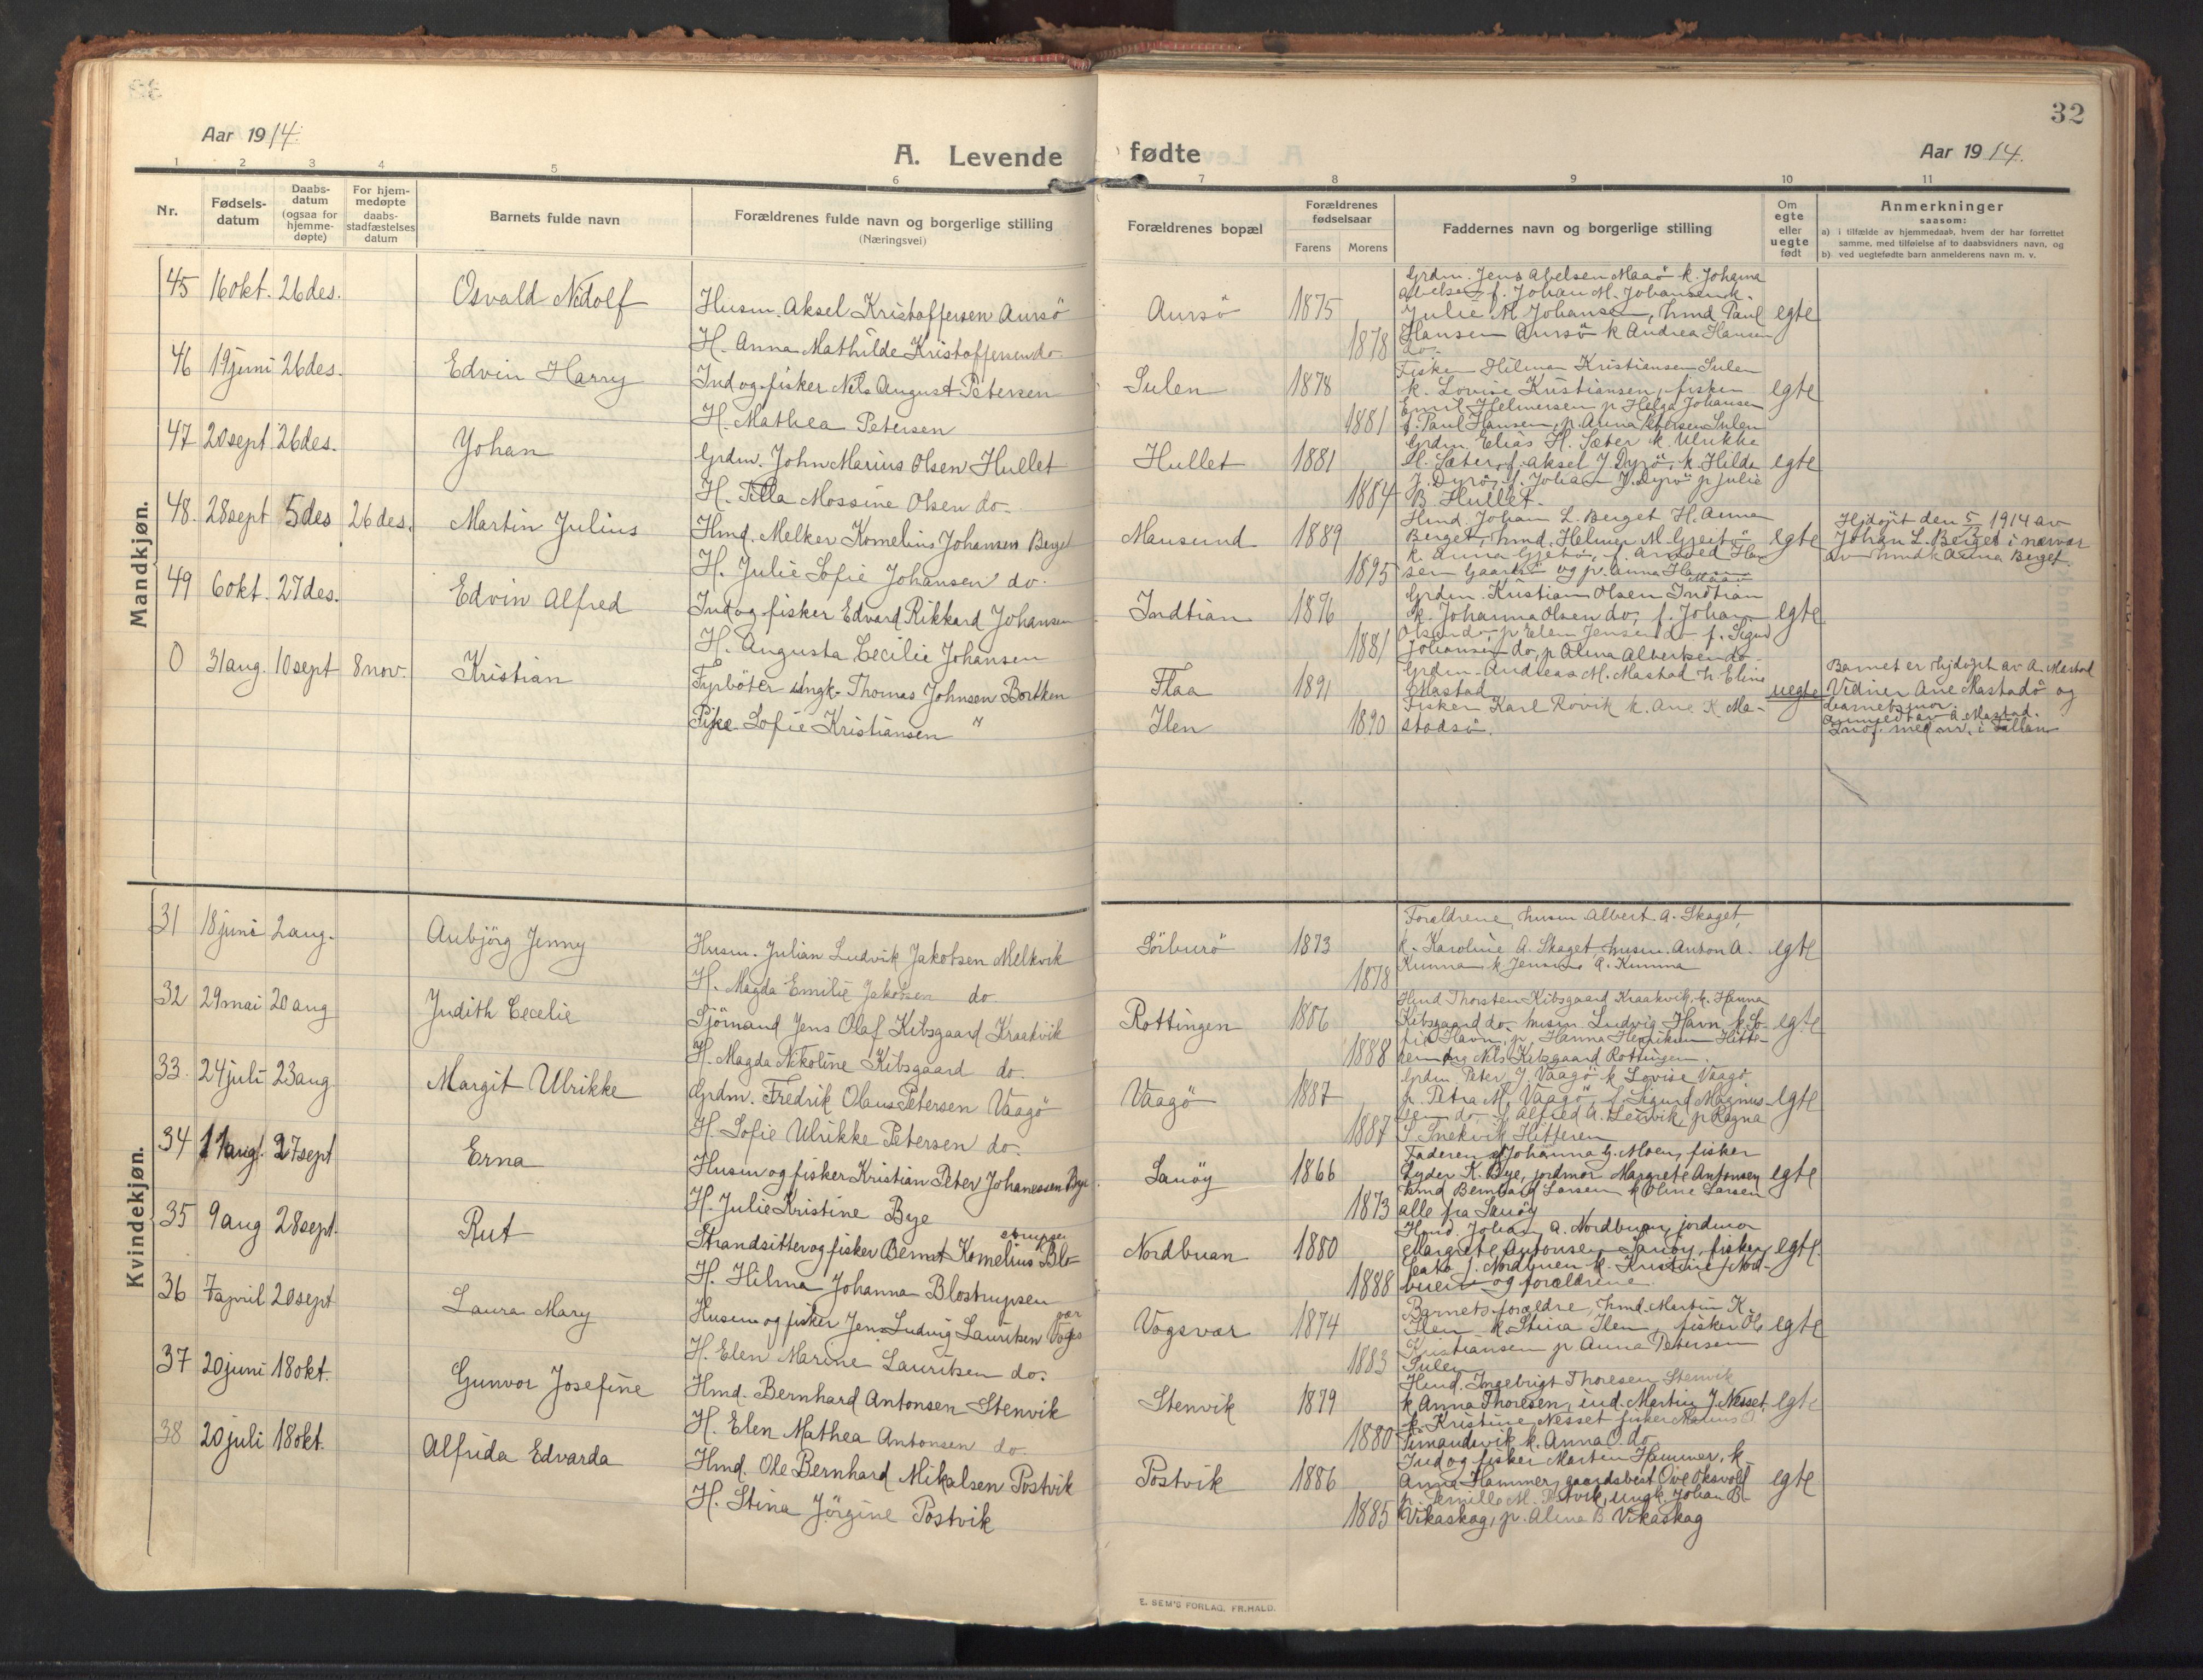 32
Aar 1914.
A. Levende fødte
Aar 1914.
1 2 3 4 5 6 7 8 9 10 11
Nr.
Fødsels-
datum
Daabs-
datum
(ogsaa for
hjemme-
døpte)
For hjem-
medøpte
daabs-
stadfæstelses
datum
Barnets fulde navn
Forældrenes fulde navn og borgerlige stilling
(Næringsvei)
Forældrenes bopæl
Forældrenes
fødselsaar
Farens Morens
Faddernes navn og borgerlige stilling
Om
egte
eller
uegte
født
Anmerkninger
saasom:
a) i tilfælde av hjemmedaab, hvem der har forrettet
samme, med tilføielse af to daabsvidners navn, og
b) ved uegtefødte barn anmelderens navn m. v.
Mandkjøn.
45 16 okt. 26 des. Osvald Nidolf
Husm. Aksel Kristoffersen Aursö
H. Anna Mathilde Kristoffersen do.
Aursö 1875 1878 egte
Grdm. Jens Abelsen Maaö k. Johanna
Abelsen, f. Johan M. Johansen k.
Julie M Johansen, hmd Paul
Hansen Aursö k Andrea Hansen
do.
46 19 juni 26 des. Edvin Harry
Ind og fisker Nils August Petersen
H. Mathea Petersen
Sulen 1878 1881 egte
Fisker Hilmer Kristiansen Sulen
k. Lovise Kristiansen, fisker
Emil Helmersen p Helga Johansen
f. Paul Hansen, p. Anna Petersen Sulen
47 20 sept 26 des. Johan
Grdm. John Marius Olsen Hullet
H. Tilla Mossine Olsen do.
Hullet 1881 1884 egte
Grdm Elias H. Sæter k. Ulrikke
H. Sæter, f. Aksel J. Dyrö, k. Hilda
J. Dyrö, f. Johan J. Dyrö p Julie
B Hullet.
48. 28 sept 5 des 26 des. Martin Julius
Hmd. Melker Kornelius Johansen Berget
H. Julie Sofie Johansen do.
Mausund 1889 1895 egte
Hmd. Johan L. Berget H. Anna
Berget, hmd. Helmer M. Gjeitö
k. Anna Gjeitö, f. Arnved Han
sen Gaasö og p. Anna Hansen
Maaö
Hjdøpt den 5/12 1914 av
Johan L. Berget i nærvær
av hmd k Anna Berget.
49 6 okt. 27 des. Edvin Alfred
Ind og fisker Edvard Rikkard Johansen
H. Augusta Cecilie Johansen
Indtian 1876 1881 egte
Grdm. Kristian Olsen Indtian
k. Johanna Olsen do, f. Johan
Olsen do, p Elen Jensen do f. Sigurd
Johansen do, p Alma Albertsen do.
0 31 aug. 10 sept 8 nov. Kristian
Fyrbøter ungk. Thomas Johnsen Bortken
Pike Sofie Kristiansen "
Flaa 1891
Ilen 1890 uegte
Grdm. Andreas M. Mastad h Eline
Mastad
Fisker Karl Rövik k. Ane K Ma-
stadsö.
Barnet er hjdøpt av A. Mastad
Vidner Ane Mastadö og
barnets mor.
Anmeldt av A. Mastad.
Indf. med nr. i Fillan
Kvindekjøn.
31 18 juni 2 aug. Aubjörg Jenny
Husm. Julian Ludvik Jakobsen Melkvik
H. Magda Emilie Jakobsen do.
Sörburö 1873 1878 egte
Forældrene, husm Albert A. Skaget,
k. Karoline A. Skaget, husm. Anton A.
Kumna k Jensine A. Kumna
32 29 mai 20 aug Judith Cecelie
Sjömand Jens Olaf Kibsgaard Kraakvik
H. Magda Nikoline Kibsgaard do.
Rottingen 1886 1888 egte
Hmd Thorsten Kibsgaard Kraakvik, k. Hanna
Kibsgaard do, husm Ludvig Havn, k. So-
fie Havn, p. Hanna Henriksen Hitte-
ren og Nils Kibsgaard Rottingen.
33. 24 juli 23 aug Margit Ulrikke
Grdm. Fredrik Olaus Petersen Vaagö
H. Sofie Ulrikke Petersen do.
Vaagö 1887 1887 egte
Grdm. Peter J. Vaagö k Lovise Vaagö
p. Petra M. Vaagö, f. Sigurd Magnus-
sen do, f Alfred A. Leirvik, p Ragna
S. Snekvik Hitteren
34 11 aug. 27 sept Erna
Husm og fisker Kristian Peter Johanessen Bye
H. Julie Kristine Bye
Sanöy 1866 1873 egte
Faderen, Johanna G. Moen, fisker
Lyder K. Bye, jordmor Margrete Antonsen
hmd Bernhard Larsen k Oline Larsen
alle fra Sanöy
35 9 aug 28 sept. Rut
Strandsitter og fisker Bernt Kornelius Blo-
strupsen
H. Hilma Johanna Blostrupsen
Nordbuan 1880 1888 egte
Hmd. Johan A. Nordbuen, jordmor
Margrete Antonsen Sanöy, fisker
J. Nordbuen k. Kristine J Nord-
buen og forældrene.
36 7 april 20 sept Laura Mary
Husm og fisker Jens Ludvig Lauritsen Vogs
vær
H. Elen Marine Lauritsen do.
Vogsvær 1874 1883 egte
Barnets forældre, hmd. Martin K.
Ilen k. Stina Ilen, fisker Ole
Kristiansen p Anna Petersen
Sulen
37 20 juni 18 okt. Gunvor Josefine
Hmd. Bernhard Antonsen Stenvik
H. Elen Mathea Antonsen do.
Stenvik 1879 1880 egte
Hmd. Ingebrigt Thoresen Stenvik
k Anna Thoresen, ind. Martin J. Nesset
k. Kristine Nesset fisker Marius O
Simandsvik k. Anna O. do
38 20 juli 18 okt. Alfrida Edvarda
Hmd. Ole Bernhard Mikalsen Postvik
H. Stina Jörgine Postvik
Postvik 1886 1885 egte
Ind og fisker Martin Hammer, k.
Anna Hammer, gaardsbest. Ove Oksvold
p. Emilie M. Postvik, ungk. Johan B.
Vikaskag, p. Alma B. Vikaskag
E. SEM'S FORLAG, FR.HALD.